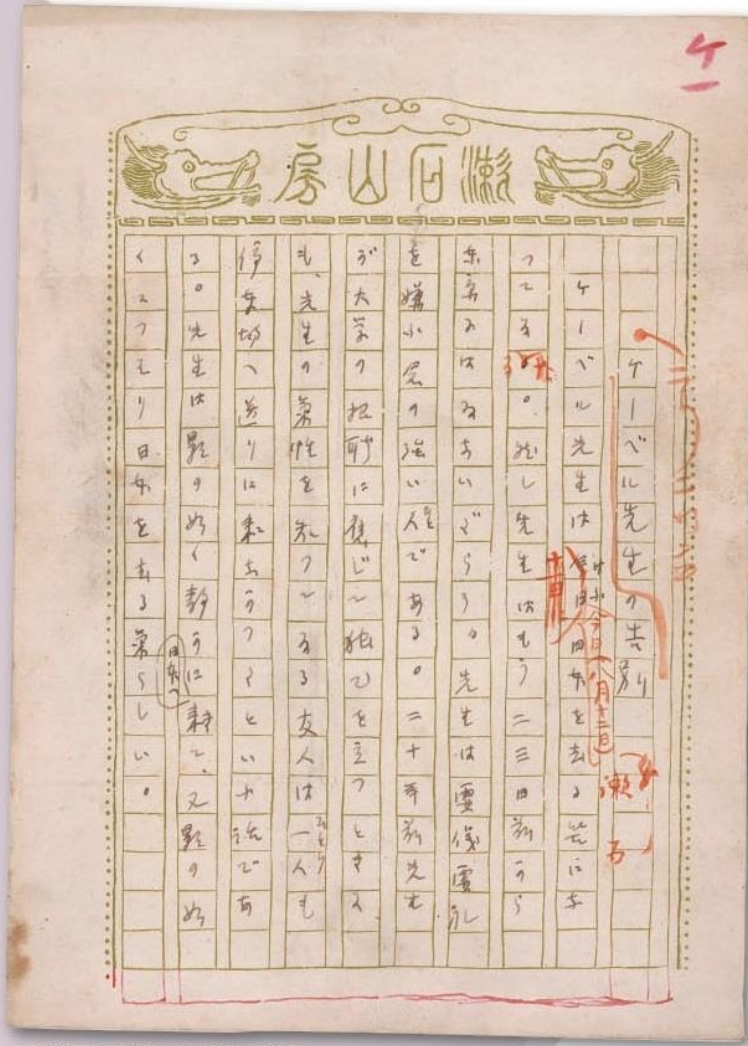 ケ一
漱石山房
ケーベル先生の告別
漱石
ケーベル先生は今日(八月十二日)日本を去る筈にな
つてゐる。然し先生はもう二三日前から
東京にはゐないだらう。先生は虚儀虚礼
を嫌ふ念の強い人である。二十年前先生
が大学の招聘に應じて独乙を立つときに
も、先生の氣性を知つてゐる友人は一人も
停車場へ送りに來なかつたといふ話であ
る。先生は影の如く静かに日本へ来て、又影の如
くこつそり日本を去る氣らしい。